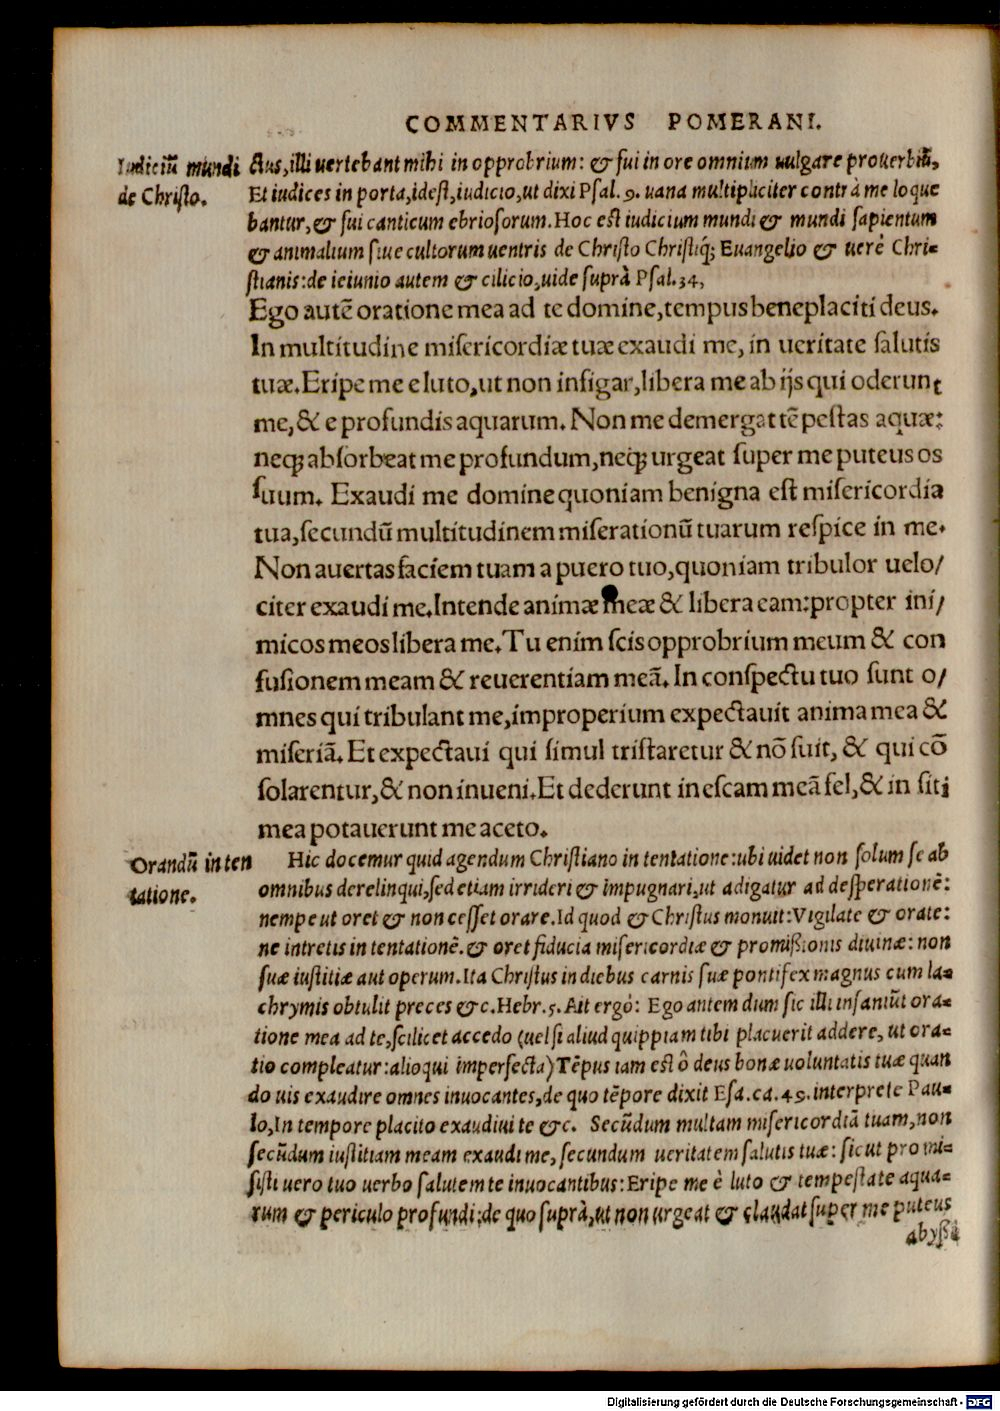 COMMENTARIVS POMERANI.
Iudiciũ mundi
de Christo.
ctus, illi uertebant mihi in opprobrium: & fui in ore omnium uulgare prouerbiũ,
Et iudices in porta, idest, iudicio, ut dixi Psal. 9. uana multipliciter contrà me loque
bantur, & fui canticum ebriosorum. Hoc est iudicium mundi & mundi sapientum
& animalium siue cultorum uentris de Christo Christiq́; Euangelio & uerè Chri-
stianis: de ieiunio autem & cilicio, uide suprà Psal. 34,
Ego autẽ oratione mea ad te domine, tempus beneplaciti deus.
In multitudine misericordiæ tuæ exaudi me, in ueritate salutis
tuæ. Eripe me e luto, ut non infigar, libera me ab ijs qui oderunt
me, & e profundis aquarum. Non me demergat tẽpestas aquæ:
neq; absorbeat me profundum, neq; urgeat super me puteus os
suum. Exaudi me domine quoniam benigna est misericordia
tua, secundũ multitudinem miserationũ tuarum respice in me.
Non auertas faciem tuam a puero tuo, quoniam tribulor uelo/
citer exaudi me. Intende animæ meæ & libera eam: propter ini/
micos meos libera me. Tu enim scis opprobrium meum & con
fusionem meam & reuerentiam meã. In conspectu tuo sunt o/
mnes qui tribulant me, improperium expectauit anima mea &
miseriã. Et expectaui qui simul tristaretur & nõ fuit, & qui cõ
solarentur, & non inueni. Et dederunt in escam meã fel, & in siti
mea potauerunt me aceto.
Orandũ in ten
tatione.
Hic docemur quid agendum Christiano in tentatione: ubi uidet non solum se ab
omnibus derelinqui, sed etiam irrideri & impugnari, ut adigatur ad desperationẽ:
nempe ut oret & non cesset orare. Id quod & Christus monuit: Vigilate & orate:
ne intretis in tentationẽ. & oret fiducia misericordiæ & promißionis diuinæ: non
suæ iustitiæ aut operum. Ita Christus in diebus carnis suæ pontifex magnus cum la-
chrymis obtulit preces &c. Hebr. 5. Ait ergo: Ego antem dum sic illi insaniũt ora-
tione mea ad te, scilicet accedo (uel si aliud quippiam tibi placuerit addere, ut ora-
tio compleatur: alioqui imperfecta) Tẽpus iam est ô deus bonæ uoluntatis tuæ quan
do uis exaudire omnes inuocantes, de quo tẽpore dixit Esa. ca. 49. interprete Pau-
lo, In tempore placito exaudiui te &c. Secũdum multam misericordiã tuam, non
secũdum iustitiam meam exaudi me, secundum ueritatem salutis tuæ: sicut promi-
sisti uero tuo uerbo salutem te inuocantibus: Eripe me è luto & tempestate aqua-
rum & periculo profundi: de quo suprà, ut non urgeat & claudat super me puteus
abyßi
Digitalisierung gefördert durch die Deutsche Forschungsgemeinschaft - DFG